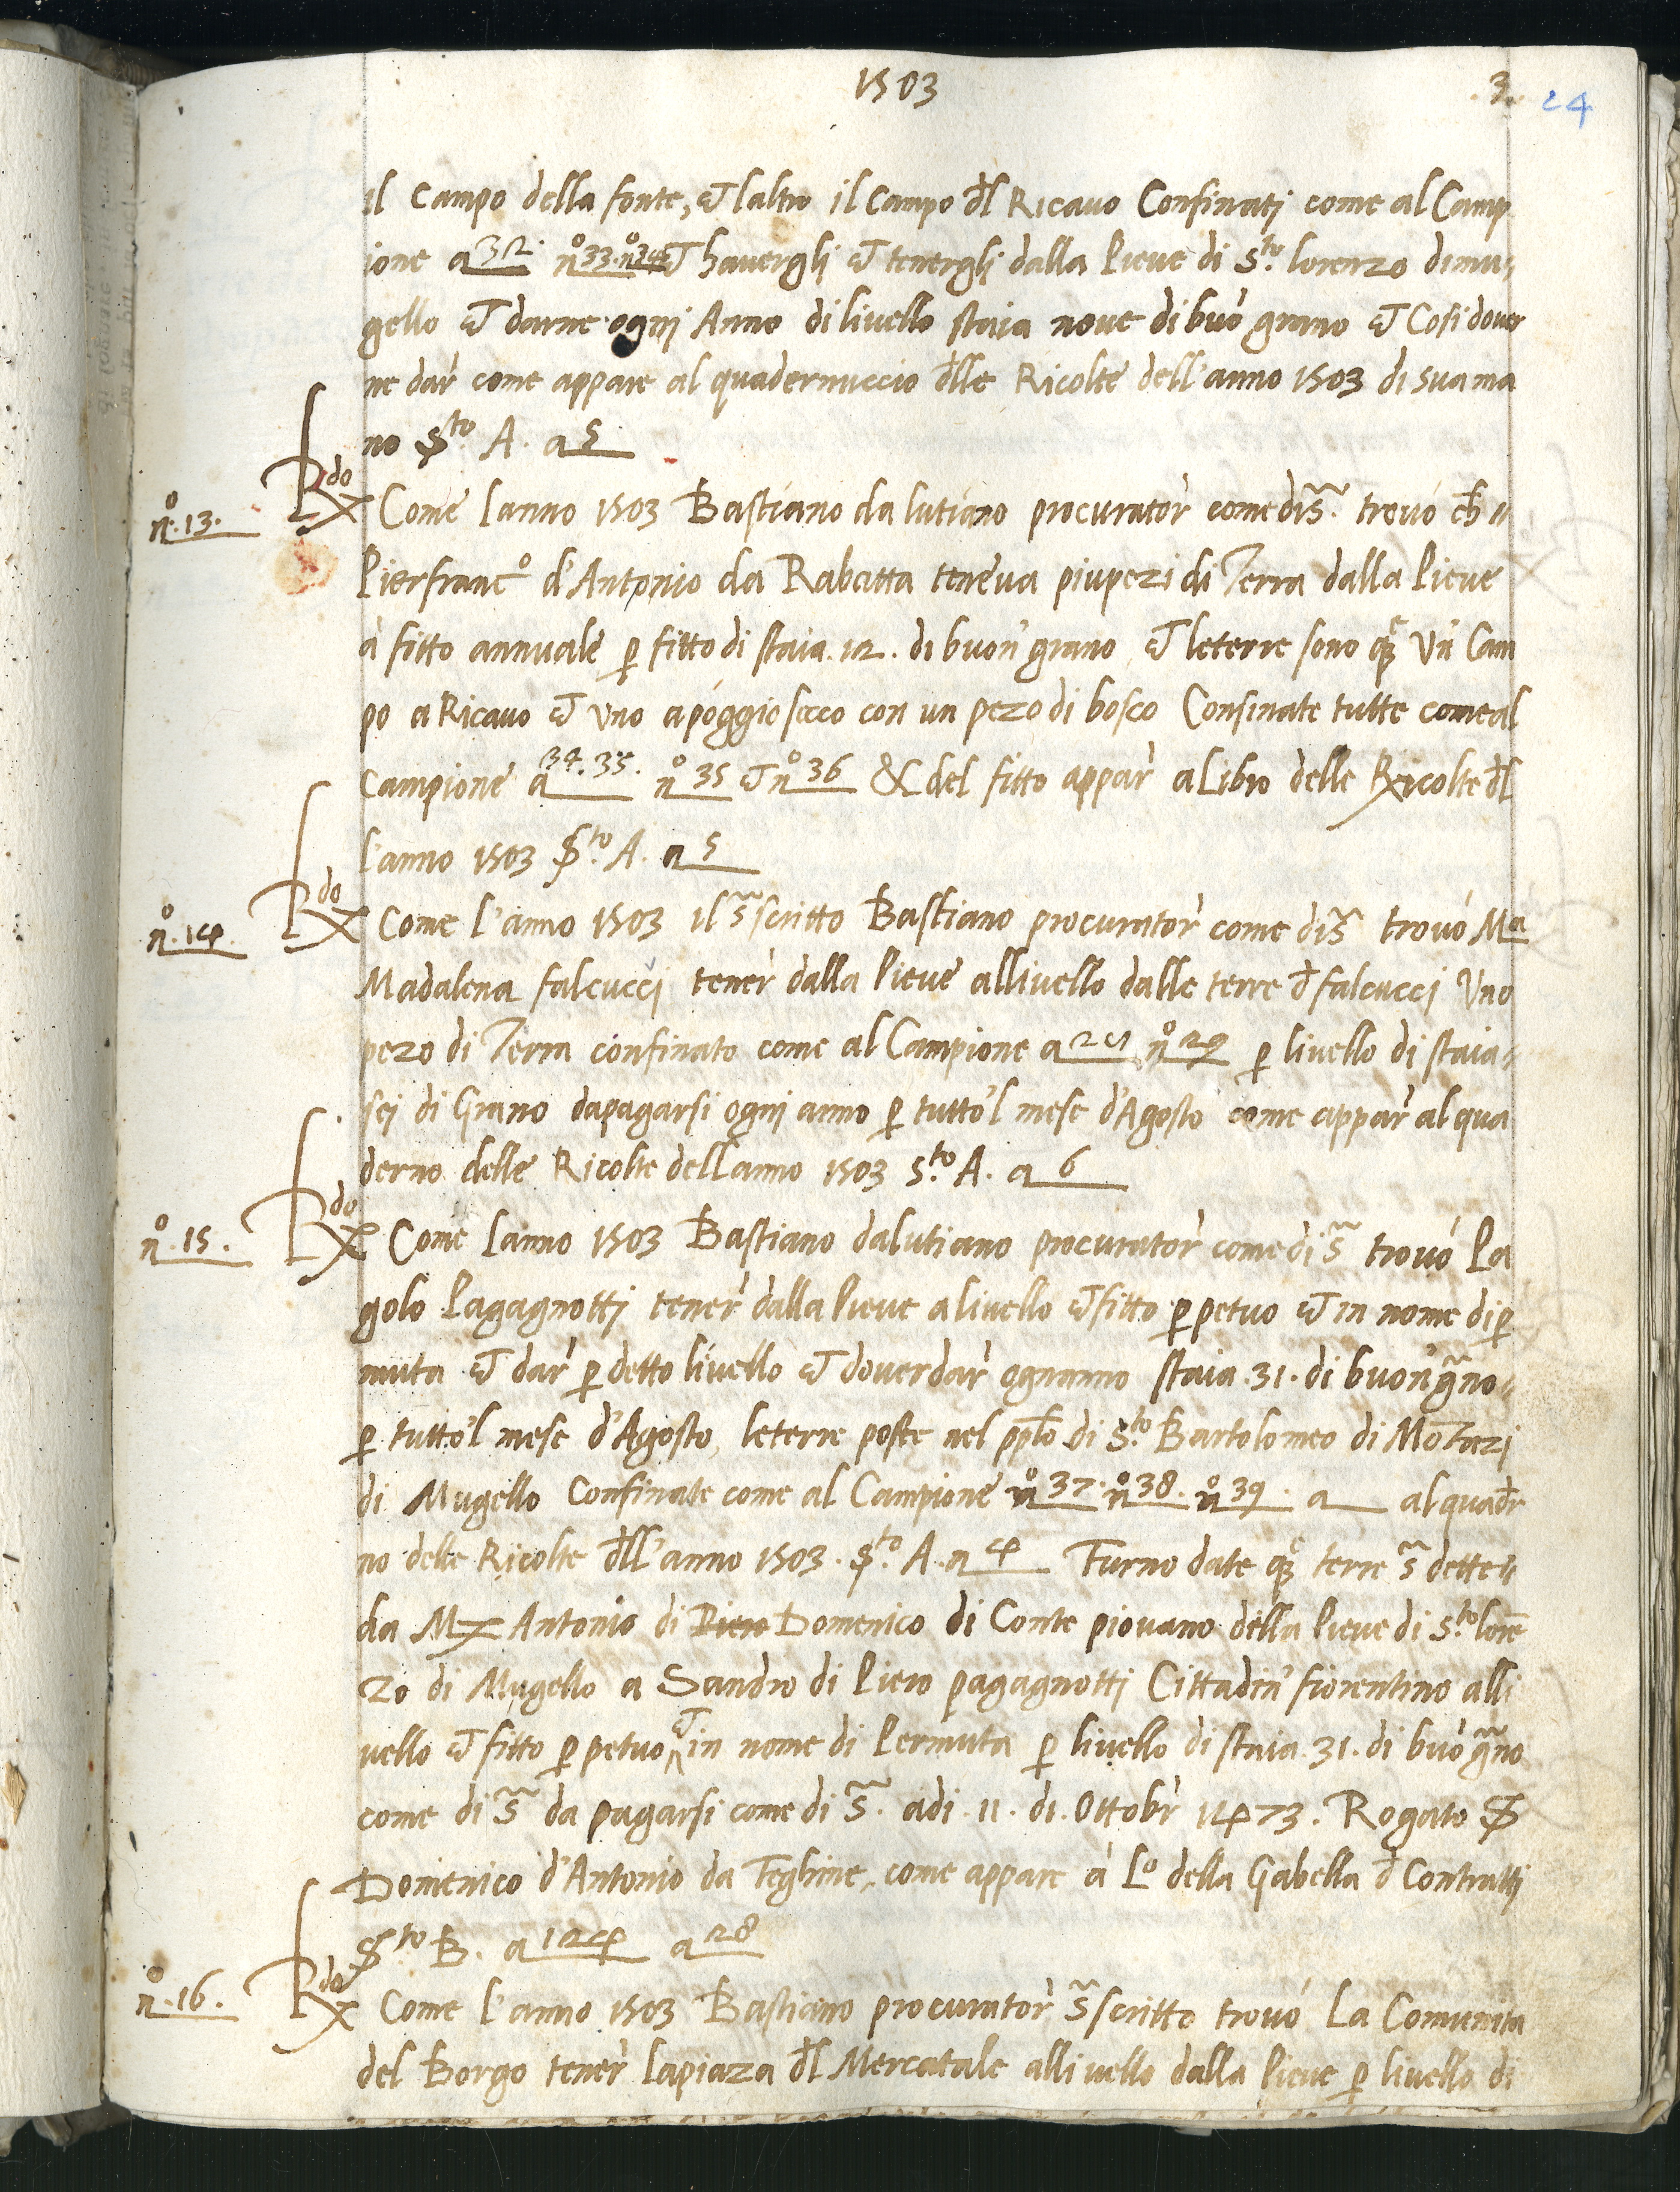 1503
3.
24
il Campo della fonte, et laltro il Campo dl Ricavo Confinati come al Camp
ione a 32. nº33. nº34 et havergli et tenergli dalla Pieve di Sto. lorenzo dimu-
gello et darne ogni Anno di livello staia nove di buo grano et Cosi dover
ne dar come appare al quadernuccio dlle Ricolte dell'anno 1503 di sua ma
no Sto. A. a 5
nº.13.
Rdo Come lanno 1503 Bastiano da lutiano procurator come dis. trovo ch
Pierfrancº d'Antonio da Rabatta teneva piu pezi di Terra dalla Pieve
à fitto annuale p fitto di staia .12. di buon grano et leterre sono qe Un Cam
po a Ricavo et uno a poggiosecco con un pezo di bosco Confinate tutte come al
Campione a 34.35. nº 35 et nº 36 & del fitto appar a Libro delle Ricolte dl
l'anno 1503 Sto. A. a 5
nº.14.
Rdo Come l'anno 1503 il sscritto Bastiano procurator come dis trovo Ma
Madalena falcucci tener dalla Pieve allivello dalle terre d falcucci Uno
pezo di Terra confinato come al Campione a 21 nº 29 p livello di staia
sei di Grano dapagarsi ogni anno p tutto'l mese d'Agosto come appar al qua
derno delle Ricolte dell anno 1503 Sto. A. a 6
nº.15.
Rdo Come lanno 1503 Bastiano dalutiano procurator come di s trovo Pa
golo Pagagnotti tener dalla Pieve a livello et fitto ppetuo et in nome di p
muta et dar p detto livello et dover dar ognanno staia .31. di buon gno
p tutto'l mese d'Agosto, leterre poste nel pplo di Sto. Bartolomeo di Motazi
di Mugello Confinate come al Campione nº 37. nº 38. nº 39. a al quadr
no delle Ricolte dll'anno 1503. Sto. A. a 4 Furno date qe terre s dette
da M Antonio di Piero Domenico di Conte piovano della Pieve di Sto. lore
zo di Mugello a Sandro di Piero pagagnotti Cittadin' fiorentino alli
vello et fitto ppetuo et in nome di Permuta p livello di staia .31. di buo gno
come di s da pagarsi come di s. adi .11. di Ottobr 1473. Rogato S
Domenico d'Antonio da Teghine, come appare à Lº della Gabella d Contratti
Sto B. a 124 a 28
nº.16.
Rdo Come l'anno 1503 Bastiano procurator sscritto trovo La Comunita
del Borgo tener lapiaza dl Mercatale allivello dalla Pieve p livello di